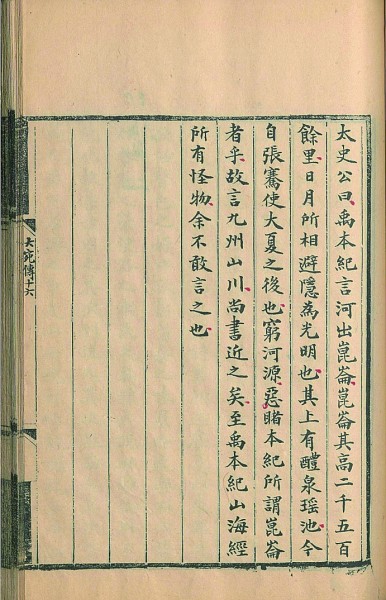 太史公曰禹本紀言河出崑崙崑崙其高二千五百
餘里日月所相避隱為光明也其上有醴泉瑶池今
自張騫使大夏之後也窮河源惡睹本紀所謂崑崙
者乎故言九州山川尚書近之矣至禹本紀山海經
所有怪物余不敢言之也
大宛傳十六